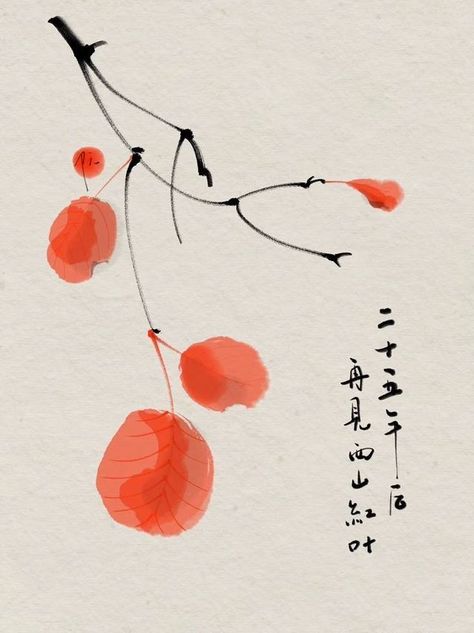 二十五年后
再见西山紅叶